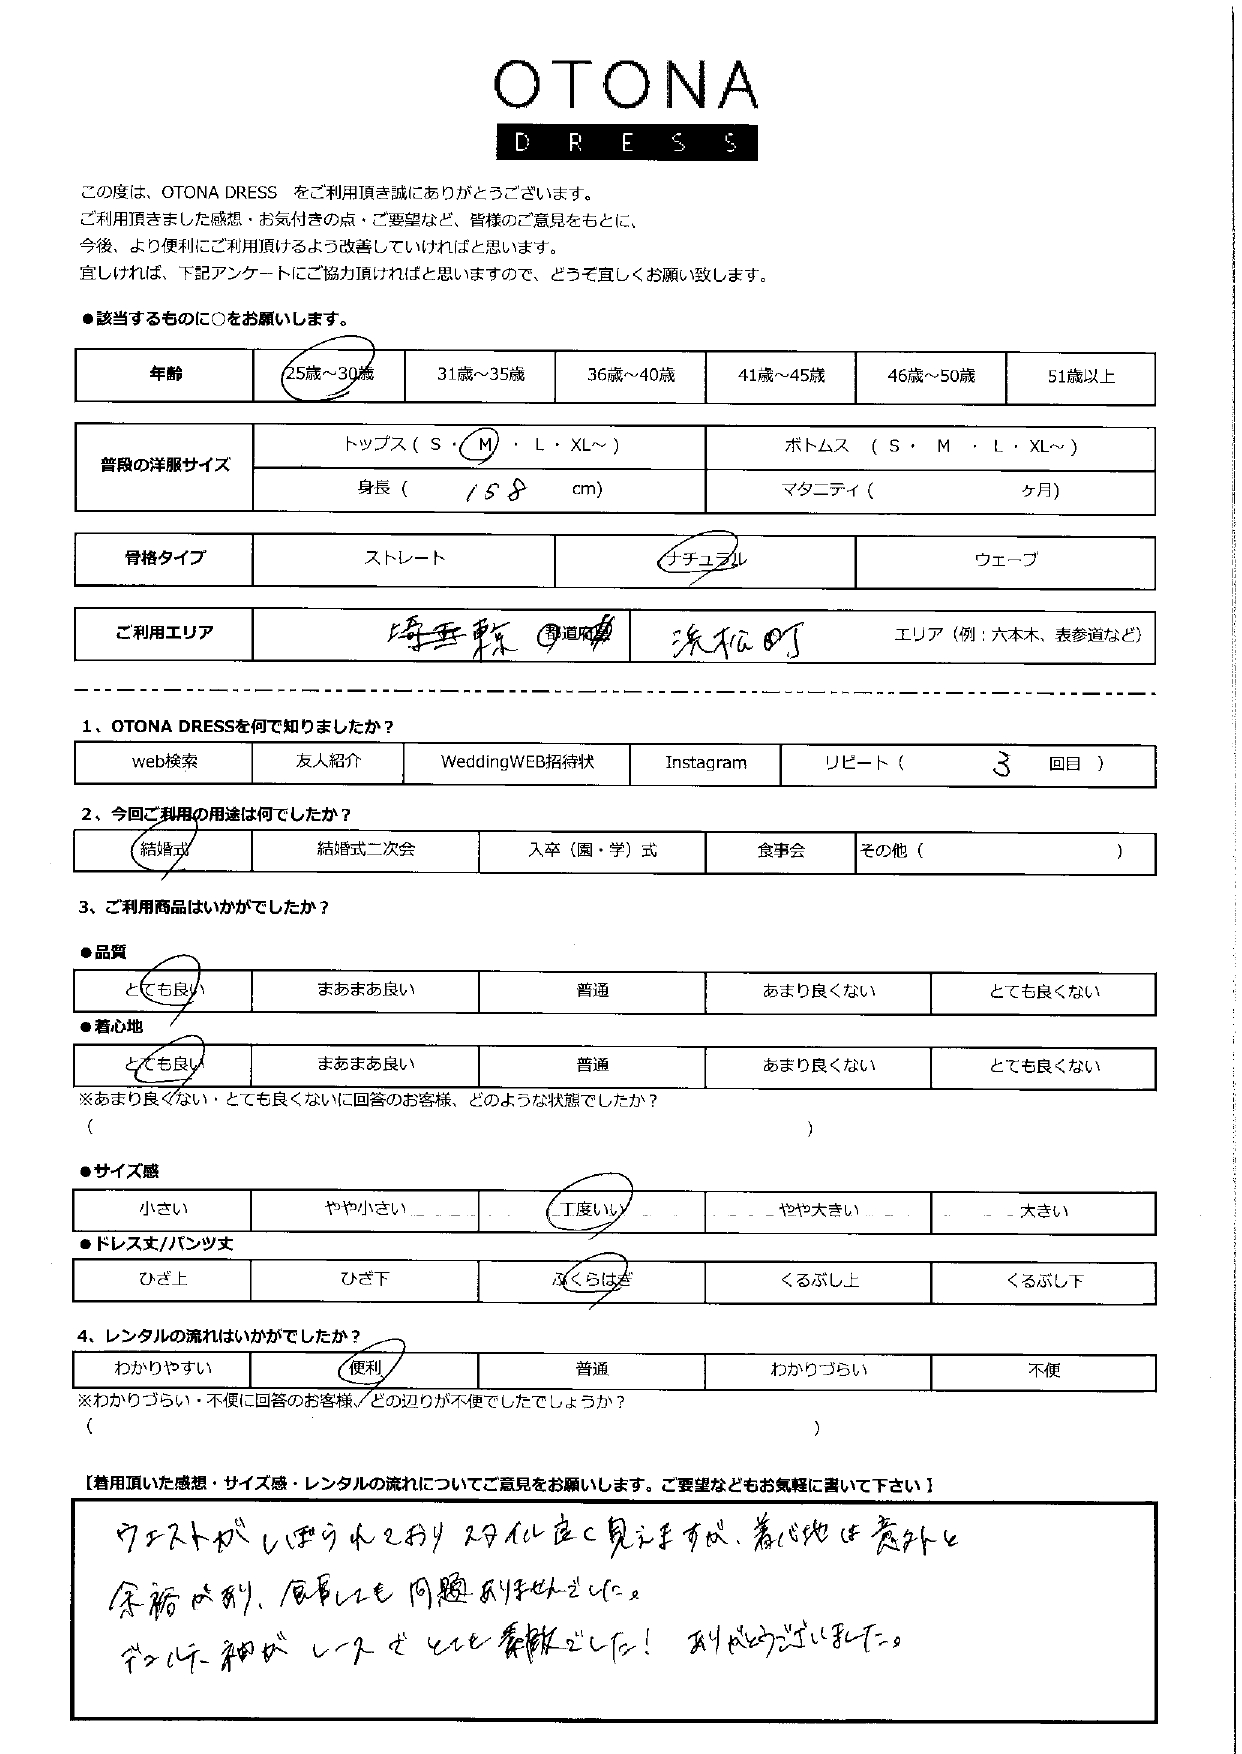 OTONA
DRESS
この度は、OTONA DRESS をご利用頂き誠にありがとうございます。
ご利用頂きました感想・お気付きの点・ご要望など、皆様のご意見をもとに、
今後、より便利にご利用頂けるよう改善していければと思います。
宜しければ、下記アンケートにご協力頂ければと思いますので、どうぞ宜しくお願い致します。
●該当するものに○をお願いします。
年齢 25歳～30歳 31歳～35歳 36歳～40歳 41歳～45歳 46歳～50歳 51歳以上
普段の洋服サイズ トップス ( S ・ M ・ L ・ XL～ ) ボトムス ( S ・ M ・ L ・ XL～ )
身長 ( 158 cm) マタニティ ( ヶ月)
骨格タイプ ストレート ナチュラル ウェーブ
ご利用エリア 東京 都道府県 浜松町 エリア（例：六本木、表参道など）
1、OTONA DRESSを何で知りましたか？
web検索 友人紹介 WeddingWEB招待状 Instagram リピート ( 3 回目 )
2、今回ご利用の用途は何でしたか？
結婚式 結婚式二次会 入卒（園・学）式 食事会 その他 ( )
3、ご利用商品はいかがでしたか？
●品質
とても良い まあまあ良い 普通 あまり良くない とても良くない
●着心地
とても良い まあまあ良い 普通 あまり良くない とても良くない
※あまり良くない・とても良くないに回答のお客様、どのような状態でしたか？
( )
●サイズ感
小さい やや小さい 丁度いい やや大きい 大きい
●ドレス丈/パンツ丈
ひざ上 ひざ下 ふくらはぎ くるぶし上 くるぶし下
4、レンタルの流れはいかがでしたか？
わかりやすい 便利 普通 わかりづらい 不便
※わかりづらい・不便に回答のお客様、どの辺りが不便でしたでしょうか？
( )
【着用頂いた感想・サイズ感・レンタルの流れについてご意見をお願いします。ご要望などもお気軽に書いて下さい】
ウエストがしぼられておりスタイル良く見えますが、着心地は意外と
余裕があり、食事しても問題ありませんでした。
デコルテ〜袖がレースでとても素敵でした！ ありがとうございました。